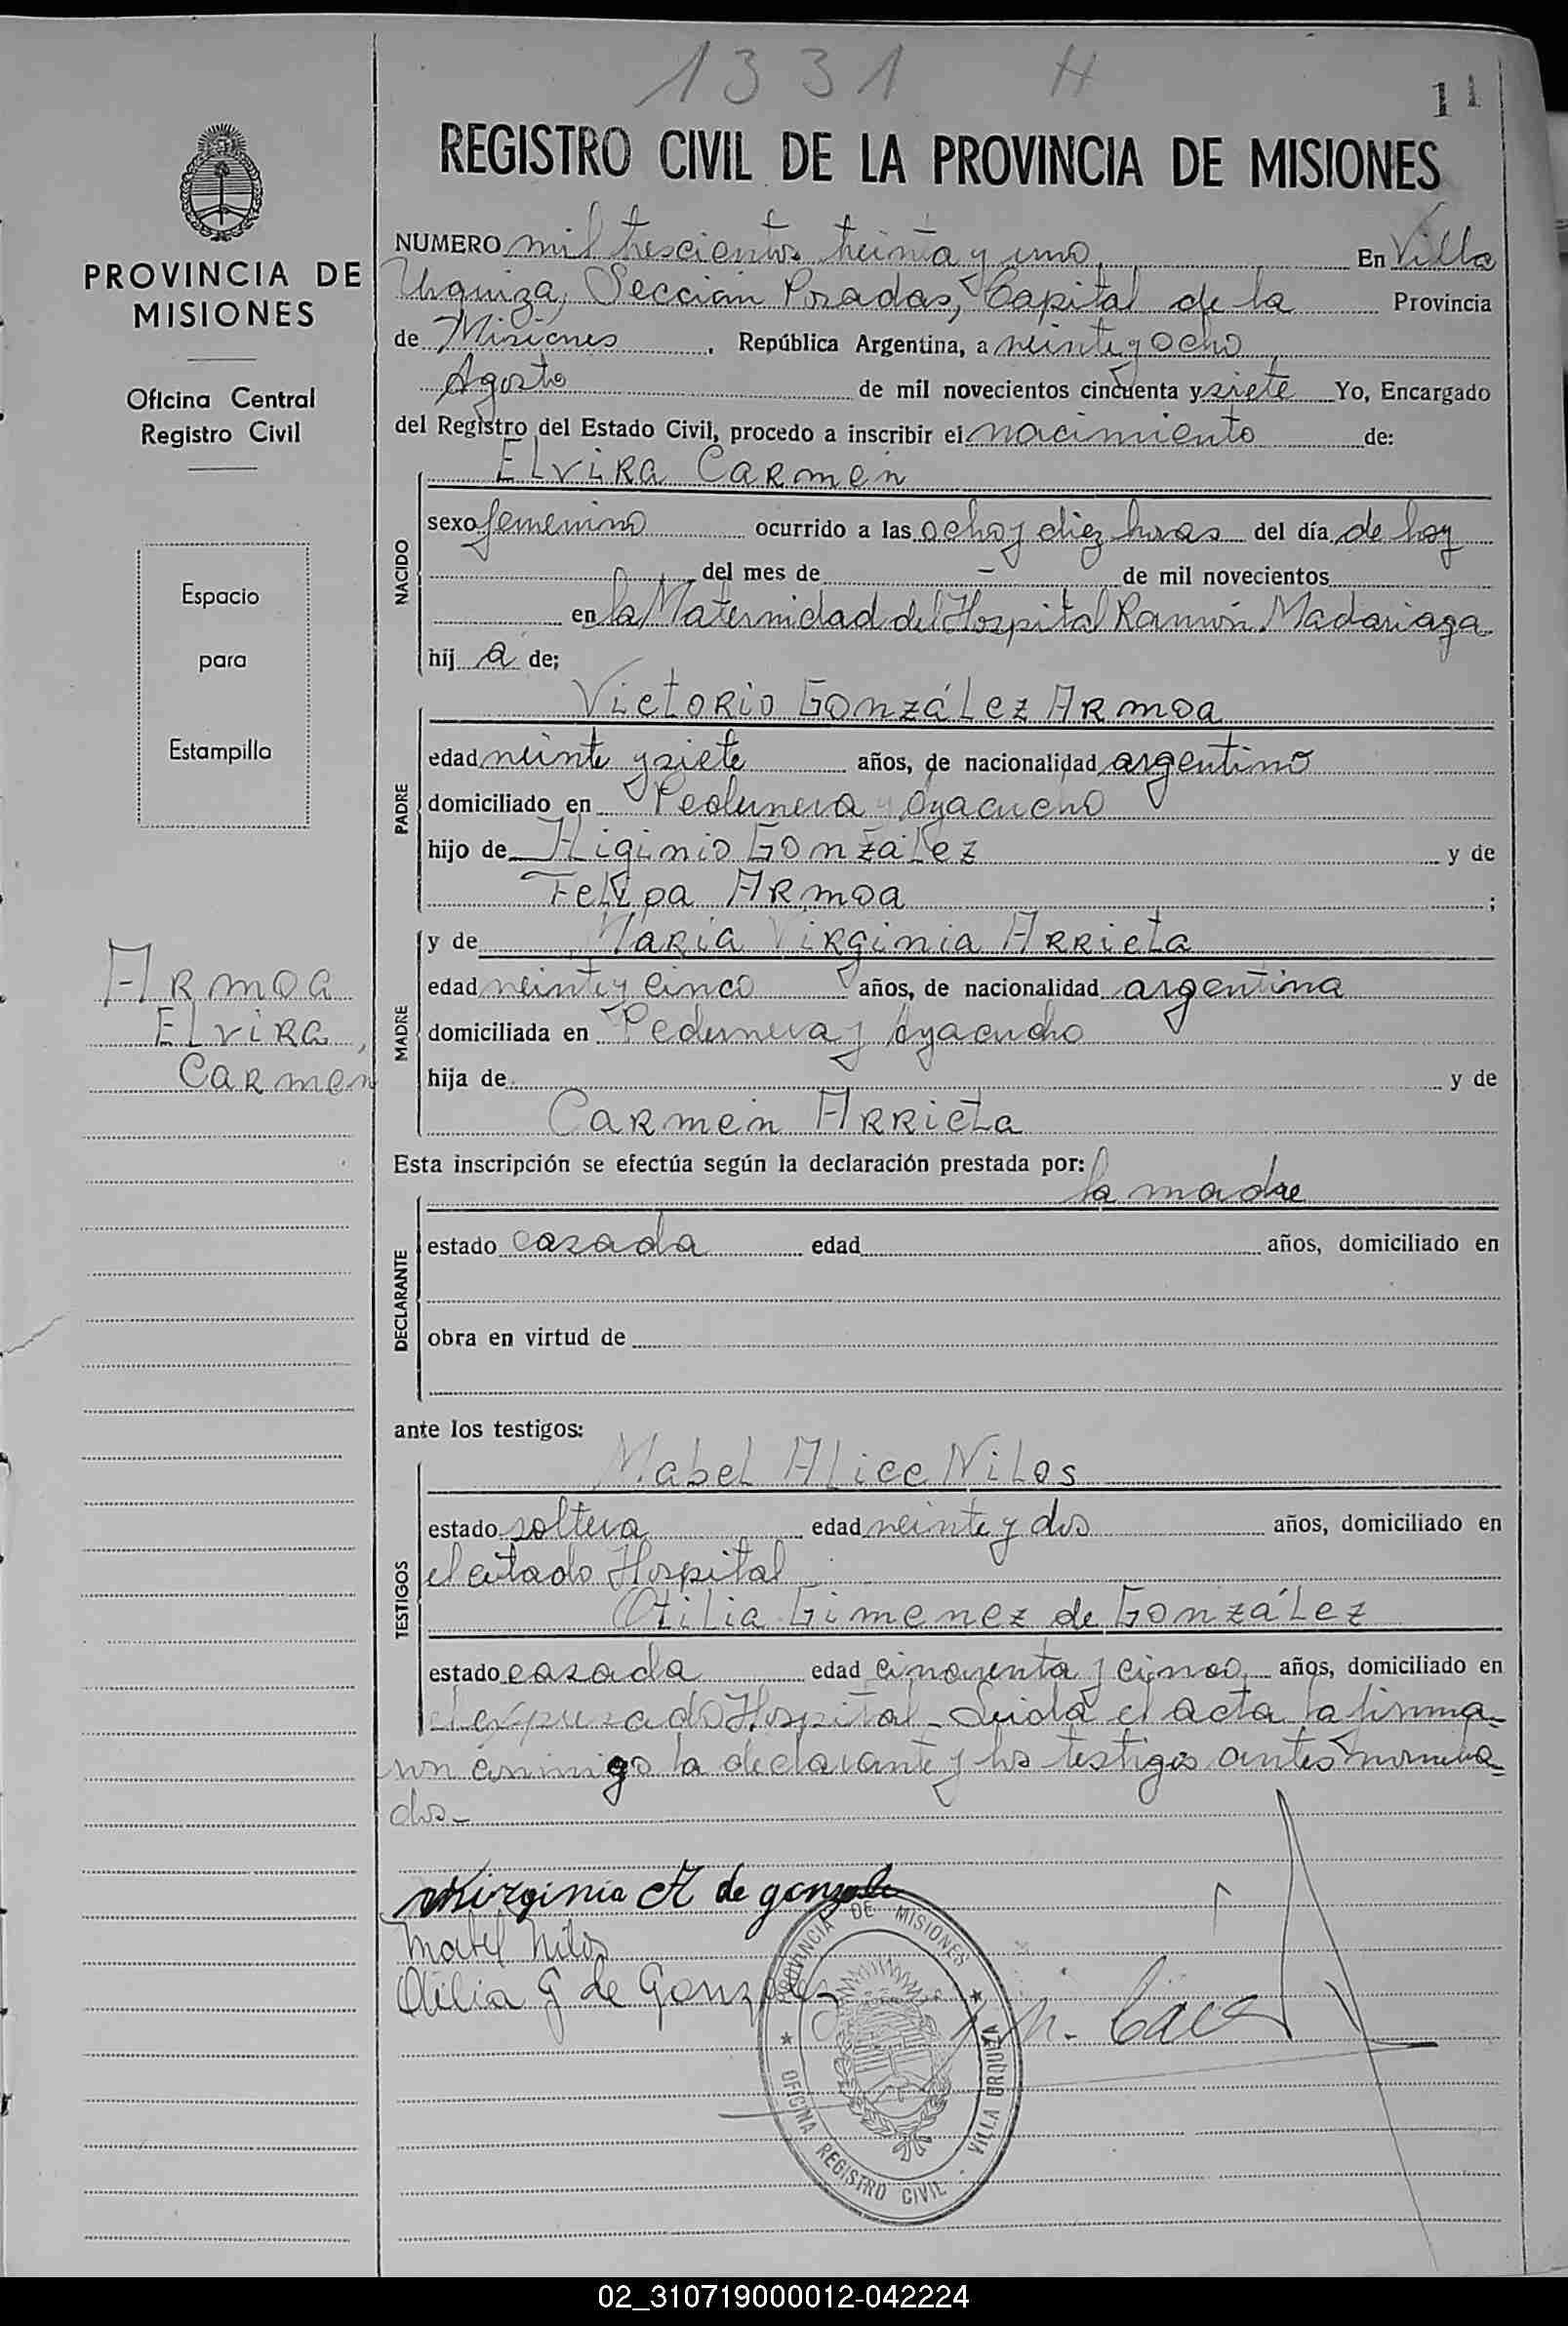 1331 H
11
REGISTRO CIVIL DE LA PROVINCIA DE MISIONES
PROVINCIA DE
MISIONES
Oficina Central
Registro Civil
Espacio
para
Estampilla
Armoa
Elvira,
Carmen
NUMERO mil trescientos treinta y uno, En Villa
Urquiza, Sección Posadas, Capital de la Provincia
de Misiones, República Argentina, a veinte y ocho
Agosto de mil novecientos cincuenta y siete Yo, Encargado
del Registro del Estado Civil, procedo a inscribir el nacimiento de:
NACIDO
Elvira Carmen
sexo femenino ocurrido a las ocho y diez horas del día de hoy
del mes de - de mil novecientos
en la Maternidad del Hospital Ramón Madariaga
hij a de;
PADRE
Victorio González Armoa
edad veinte y siete años, de nacionalidad argentino
domiciliado en Pedernera y Ayacucho
hijo de Higinio González y de
Felipa Armoa ;
MADRE
y de María Virginia Arrieta
edad veinte y cinco años, de nacionalidad argentina
domiciliada en Pedernera y Ayacucho
hija de y de
Carmen Arrieta
Esta inscripción se efectúa según la declaración prestada por:
la madre
DECLARANTE
estado casada edad años, domiciliado en
obra en virtud de
ante los testigos:
TESTIGOS
Mabel Alice Nilos
estado soltera edad veinte y dos años, domiciliado en
el citado Hospital
Otilia Gimenez de González
estado casada edad cincuenta y cinco, años, domiciliado en
el expresado Hospital - Leida el acta la firma-
ron conmigo la declarante y los testigos antes nombra-
dos.-
Virginia A de gonzale
Mabel Nilos
Otilia G de Gonzalez
PROVINCIA DE MISIONES
OFICINA REGISTRO CIVIL - VILLA URQUIZA
02_310719000012-042224